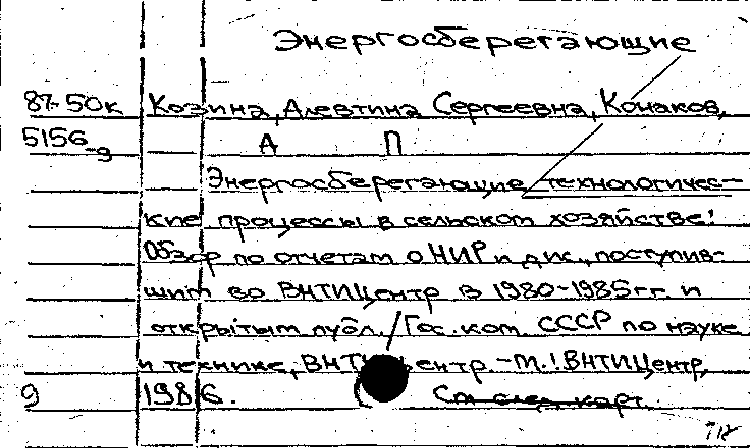 Энергосберегающие
87-50к Козина, Алевтина Сергеевна, Конаков,
5156-9 А П
Энергосберегающие технологичес-
кие процессы в сельском хозяйстве:
Обзор по отчетам о НИР и дис., поступив-
шим во ВНТИЦентр в 1980-1985 гг. и
открытым публ. / Гос. ком. СССР по науке
и технике, ВНТИЦентр. - М.: ВНТИЦентр,
9 1986. См след. карт.